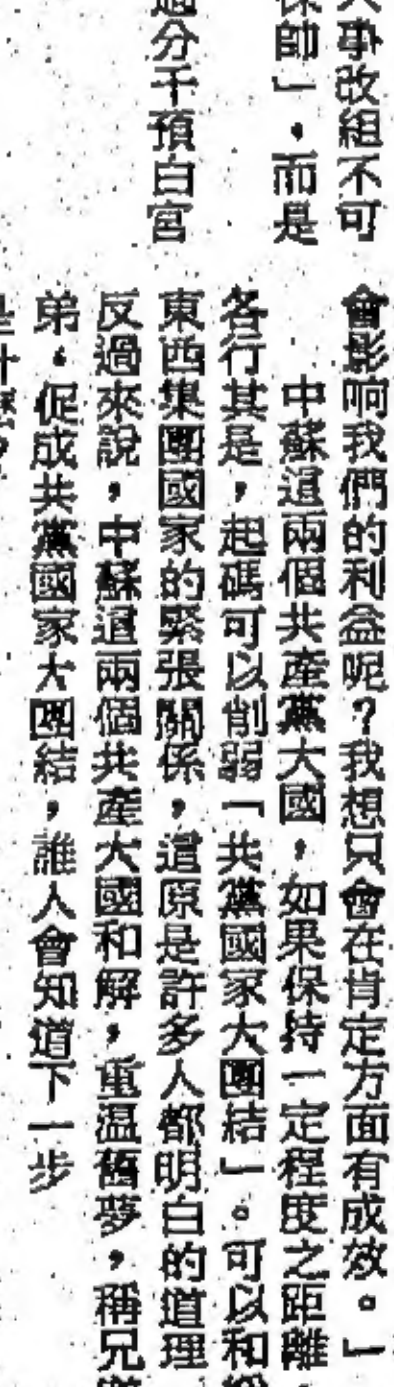 大爭改組不可
保帥」，而是
過分干預白宮
會影响我們的利益呢？我想只會在肯定方面有成效。」
中蘇這兩個共產黨大國，如果保持一定程度之距離
各行其是，起碼可以削弱「共黨國家大團結」。可以和
東西集團國家的緊張關係，這原是許多人都明白的道理
反過來說，中蘇這兩個共產大國和解，重温舊夢，稱兄
弟，促成共黨國家大團結，誰人會知道下一步